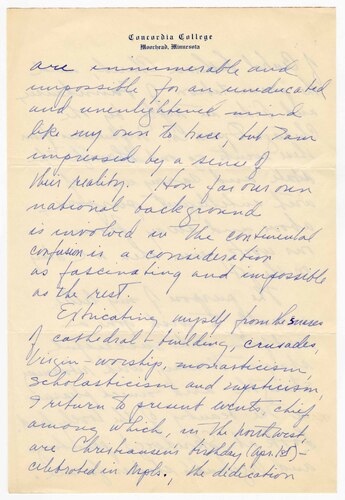 Concordia College
Moorhead, Minnesota
are innumerable and
impossible for an uneducated
and unenlightened mind
like my own to trace, but I am
impressed by a sense of
their reality. How far our own
national background
is involved in the continental
confusion is a consideration
as fascinating and impossible
as the rest.
Extricating myself from the
of cathedral-building, crusades,
Virgin-worship, monasticism,
scholasticism and mysticism,
I return to present events, chief
among which, in the Northwest,
are Christiansen's birthday (Apr. 1st)-
celebrated in Mpls., the dedication